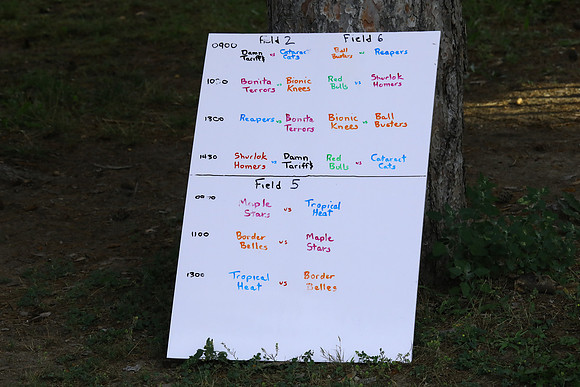 Field 2 Field 6
0900 Damn Tariff$ vs Cataract Cats Ball Busters vs Reapers
Bonita Terrors vs Bionic Knees Red Bulls vs Shurlok Homers
1300 Reapers vs Bonita Terrors Bionic Knees vs Ball Busters
1430 Shurlok Homers vs Damn Tariff$ Red Bulls vs Cataract Cats
Field 5
Maple Stars vs Tropical Heat
1100 Border Belles vs Maple Stars
1300 Tropical Heat vs Border Belles